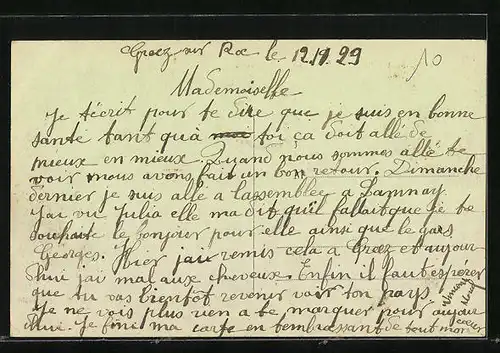 Greez sur Roc le 12.9.29
10
Mademoiselle
Je técrit pour te dire que je suis en bonne
santé tant quà toi ça doit allé de
mieux en mieux. Quand nous sommes allé te
voir nous avons fait un bon retour. Dimanche
dernier je suis allé a lassemblée a Lamnay
jai vu Julia elle ma dit quil fallait que je te
souhaite le bonjour pour elle ainsi que le gars
Georges. Hier jai remis cela a Greez et aujour
dhui jai mal aux cheveux. Enfin il faut espérer
que tu vas bientôt revenir voir ton pays
Je ne vois plus rien a te marquer pour aujour
dhui. Je fini ma carte en tembrassant de tout mon
cœur